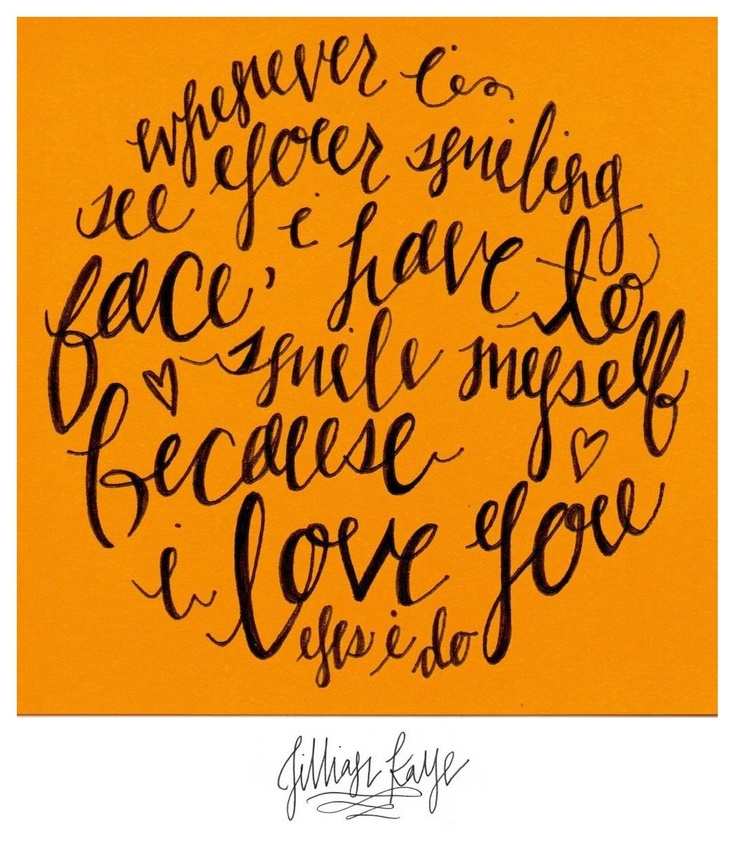 whenever i
see your smiling
face, i have to
smile myself
because
i love you
yes i do
Jillian Kaye